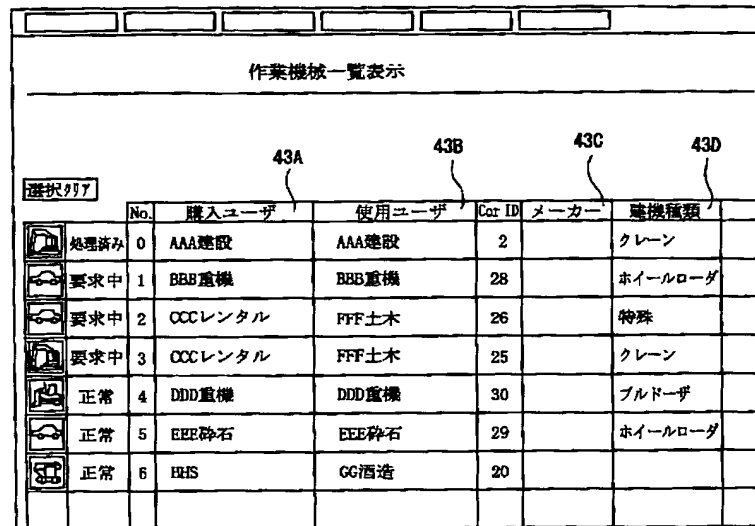 作業機械一覧表示
43A 43B 43C 43D
選択クリア
No. 購入ユーザ 使用ユーザ Cor ID メーカー 建機種類
処理済み 0 AAA建設 AAA建設 2 クレーン
要求中 1 BBB重機 BBB重機 28 ホイールローダ
要求中 2 CCCレンタル FFF土木 26 特殊
要求中 3 CCCレンタル FFF土木 25 クレーン
正常 4 DDD重機 DDD重機 30 ブルドーザ
正常 5 EEE砕石 EEE砕石 29 ホイールローダ
正常 6 HHS GG酒造 20